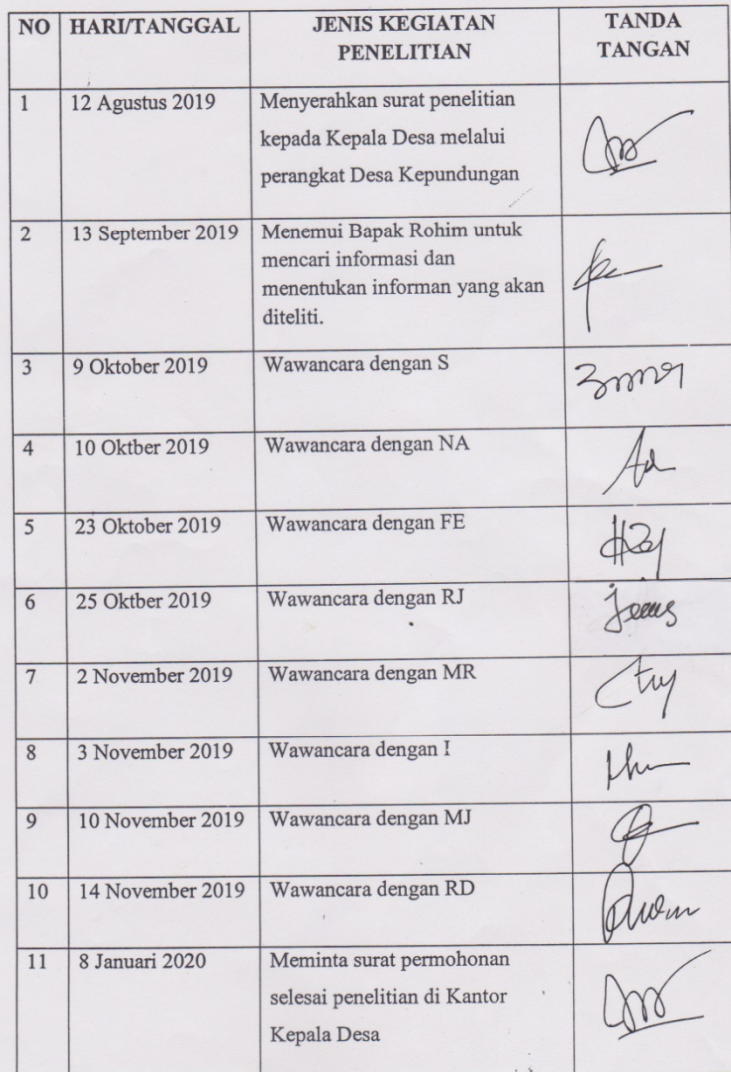 NO HARI/TANGGAL JENIS KEGIATAN TANDA
PENELITIAN TANGAN
1 12 Agustus 2019 Menyerahkan surat penelitian
kepada Kepala Desa melalui
perangkat Desa Kepundungan
2 13 September 2019 Menemui Bapak Rohim untuk
mencari informasi dan
menentukan informan yang akan
diteliti.
3 9 Oktober 2019 Wawancara dengan S
4 10 Oktber 2019 Wawancara dengan NA
5 23 Oktober 2019 Wawancara dengan FE
6 25 Oktber 2019 Wawancara dengan RJ
7 2 November 2019 Wawancara dengan MR
8 3 November 2019 Wawancara dengan I
9 10 November 2019 Wawancara dengan MJ
10 14 November 2019 Wawancara dengan RD
11 8 Januari 2020 Meminta surat permohonan
selesai penelitian di Kantor
Kepala Desa